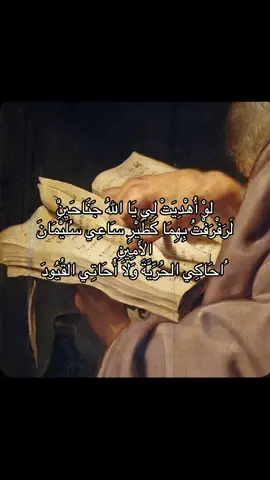 لوْ أُهْدِيَتْ لِي يَا اللهُ جَنَاحَينْ
لَرَفْرَفْتُ بِهِمَا كَطَيْرٍ سَاعِي سُلَيْمَانَ
الأَمِينِ
اُحَاكِي الحُرِّيَّةَ وَلَا أُحَاتِي القُيُودَ